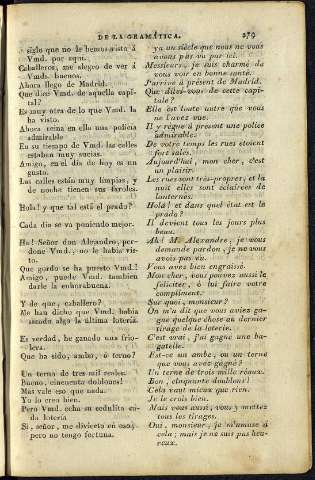 DE LA GRAMÁTICA. 279
siglo que no le hemos visto á
Vmd. por aquí.
Caballeros, me alegro de ver á
Vmds. buenos.
Ahora llego de Madrid.
Que dice Vmd. de aquella capital?
Es muy otra de lo que Vmd. la
ha visto.
Ahora reina en ella una policía
admirable
En su tiempo de Vmd. las calles
estaban muy sucias.
Amigo, en el dia de hoy es un
gusto.
Las calles están muy limpias, y
de noche tienen sus faroles.
Hola! y que tal está el prado?
Cada dia se va poniendo mejor.
Ha! Señor don Alexandro, perdone
Vmd., no le habia visto.
Que gordo se ha puesto Vmd.!
Amigo, puede Vmd. tambien
darle la enhorabuena.
Y de que, caballero?
Me han dicho que Vmd. habia
sacado algo la última lotería.
Es verdad, he ganado una friolera.
Que ha sido, ambo, ó terno?
Un terno de tres mil reales.
Bueno, cincuenta doblones!
Mas vale eso que nada.
Yo lo creo bien.
Pero Vmd. echa su cedulita cada
lotería
Sí, señor, me divierto en eso;
pero no tengo fortuna.
ya un siècle que nous ne vous
avons pas vu par ici.
Messieurs, je suis charmé de
vous voir en bonne santé.
J'arrive à présent de Madrid.
Que dites-vous de cette capitale?
Elle est toute autre que vous
ne l'avez vue.
Il y règne à présent une police
admirable.
De votre temps les rues étoient
fort sales.
Aujourd'hui, mon cher, c'est
un plaisir.
Les rues sont très-propres, et la
nuit elles sont éclairées de
lanternes.
Holà! et dans quel état est le
prado?
Il devient tous les jours plus
beau.
Ah! M. Alexandre, je vous
demande pardon, je ne vous
avois pas vu.
Vous avez bien engraissé.
Mon cher, vous pouvez aussi le
féliciter, ó lui faire votre
compliment.
Sur quoi, monsieur?
On m'a dit que vous aviez gagné
quelque chose au dernier
tirage de la loterie.
C'est vrai, j'ai gagné une bagatelle.
Est-ce un ambe, ou un terne
que vous avez gagné?
Un terne de trois mille réaux.
Bon, cinquante doublons!
Cela vaut mieux que rien.
Je le crois bien.
Mais vous aussi, vous y mettez
tous les tirages.
Oui, monsieur, je m'amuse à
cela; mais je ne suis pas heureux.